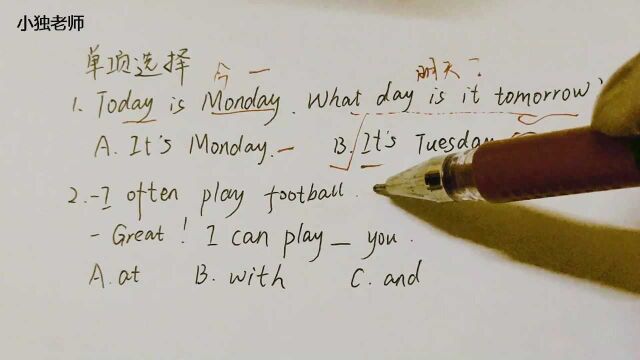 小独老师
单项选择
今 一 明天?
1. Today is Monday. What day is it tomorrow?
A. It's Monday. B. It's Tuesday
2. -I often play football.
- Great! I can play _ you.
A. at B. with C. and